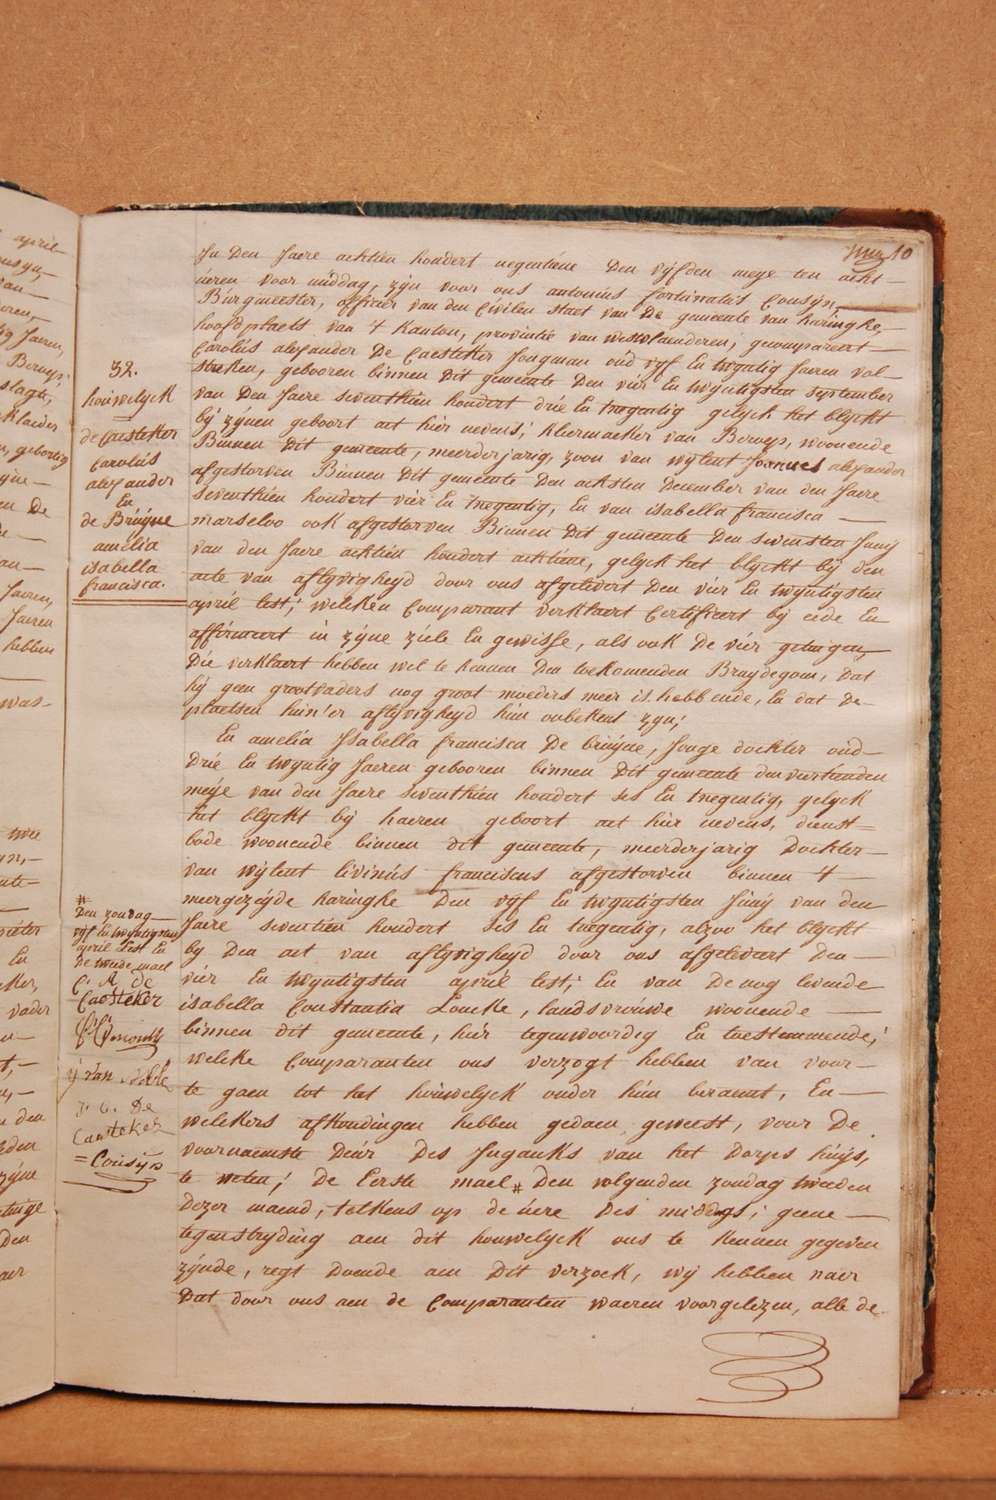 10
In Den Jaere achtien hondert negentiene Den vyfden meye ten acht
ueren voor middag, zyn voor ons antonius fortunatus Cousyn
Burgmeester, officier van den Civilen staet van De gemeente van haringhe,
hoofdplaets van 't Kanton, provintie van westvlaenderen, gecompareert
Carolus alexander De Caesteker Jongman oud vyf En twyntig Jaeren vol-
streken, gebooren binnen Dit gemeente Den vier En twyntigsten september
van Den Jaere seventhien hondert drie En tnegentig gelyck het blyckt
bij zynen geboort act hier nevens; Kleermaeker van Beroep, woonende
Binnen Dit gemeente, meerderjarig, zoon van wylent Joannes alexander
afgestorven Binnen Dit gemeente Den achsten December van den Jaere
seventhien hondert vier En tnegentig, En van isabella francisca
marseloo ook afgestorven Binnen Dit gemeente Den sevensten Junij
van den Jaere achtien hondert achtiene, gelyck het blyckt bij den
acte van aflyvigheyd door ons afgelevert Den vier En twyntigsten
april lest; welcken Comparant verklaert Certifieert bij eede En
affirmeert in zyne ziele En gewisse, als ook De vier getuigen,
Die verklaert hebben wel te kennen Den toekomenden Bruydegom, Dat
hij geen grootvaders nog groot moeders meer is hebbende, En dat De
plaetsen hun'er aflyvigheyd hun onbekent zyn;
En amelia Isabella francisca De bruyne, Jonge dochter oud
Drie En twyntig Jaeren gebooren binnen Dit gemeente den viertienden
meije van den Jaere seventhien hondert ses En tnegentig, gelyck
het blyckt bij haeren geboort act hier nevens, dienst=
bode woonende binnen dit gemeente, meerderjarig Dochter
van wylent livinus franciscus afgestorven binnen 't
meergezeyde haringhe Den vyf En twyntigsten Junij van den
Jaere seventien hondert ses En tnegentig, alzoo het blyckt
by Den act van aflyvigheyd door ons afgelevert Den
vier En twyntigsten april lest; En van De nog levende
isabella Constantia Loncke, landsvrouwe woonende
binnen dit gemeente, hier tegenwoordig En toestemmende;
welcke Comparanten ons verzogt hebben van voor
te gaen tot het houwelyck onder hun beraemt, En
welckers afkondingen hebben gedaen geweest, voor De
voornaemste Deur Des Inganks van het Dorps huys,
te weten; De Eerste mael # Den volgenden zondag tweeden
Dezer maend, telkens op de uere Des middags; geene
tegenstryding aen dit houwelyck ons te kennen gegeven
zynde, regt Doende aen Dit verzoek, wy hebben naer
Dat door ons aen de Comparanten waeren voorgelezen, alle de
32.
houwelyck
de Caesteker
Carolus
alexander
En
de Bruyne
amelia
isabella
francisca.
#
Den zondag
vyf En twyntigsten
april Lest En
De tweede mael
C: A de
Caesteker
De
Caesteker
= Cousyn